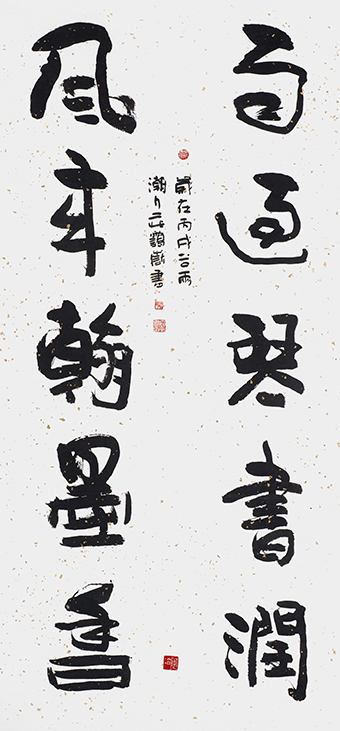 雨過琴書潤
風來翰墨香
歲在丙戌谷雨
潮人書